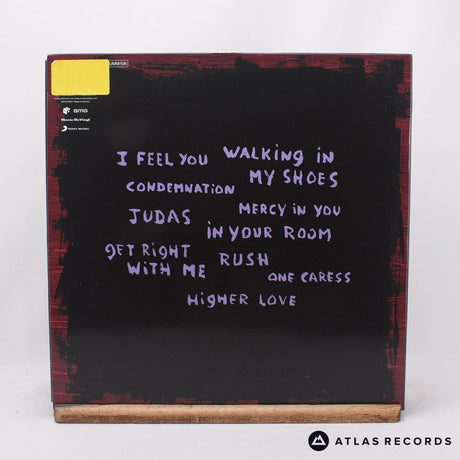 BMG
Music On Vinyl
SONY MUSIC
I FEEL YOU WALKING IN
MY SHOES
CONDEMNATION
MERCY IN YOU
JUDAS
IN YOUR ROOM
GET RIGHT
WITH ME
RUSH
ONE CARESS
HIGHER LOVE
ATLAS RECORDS